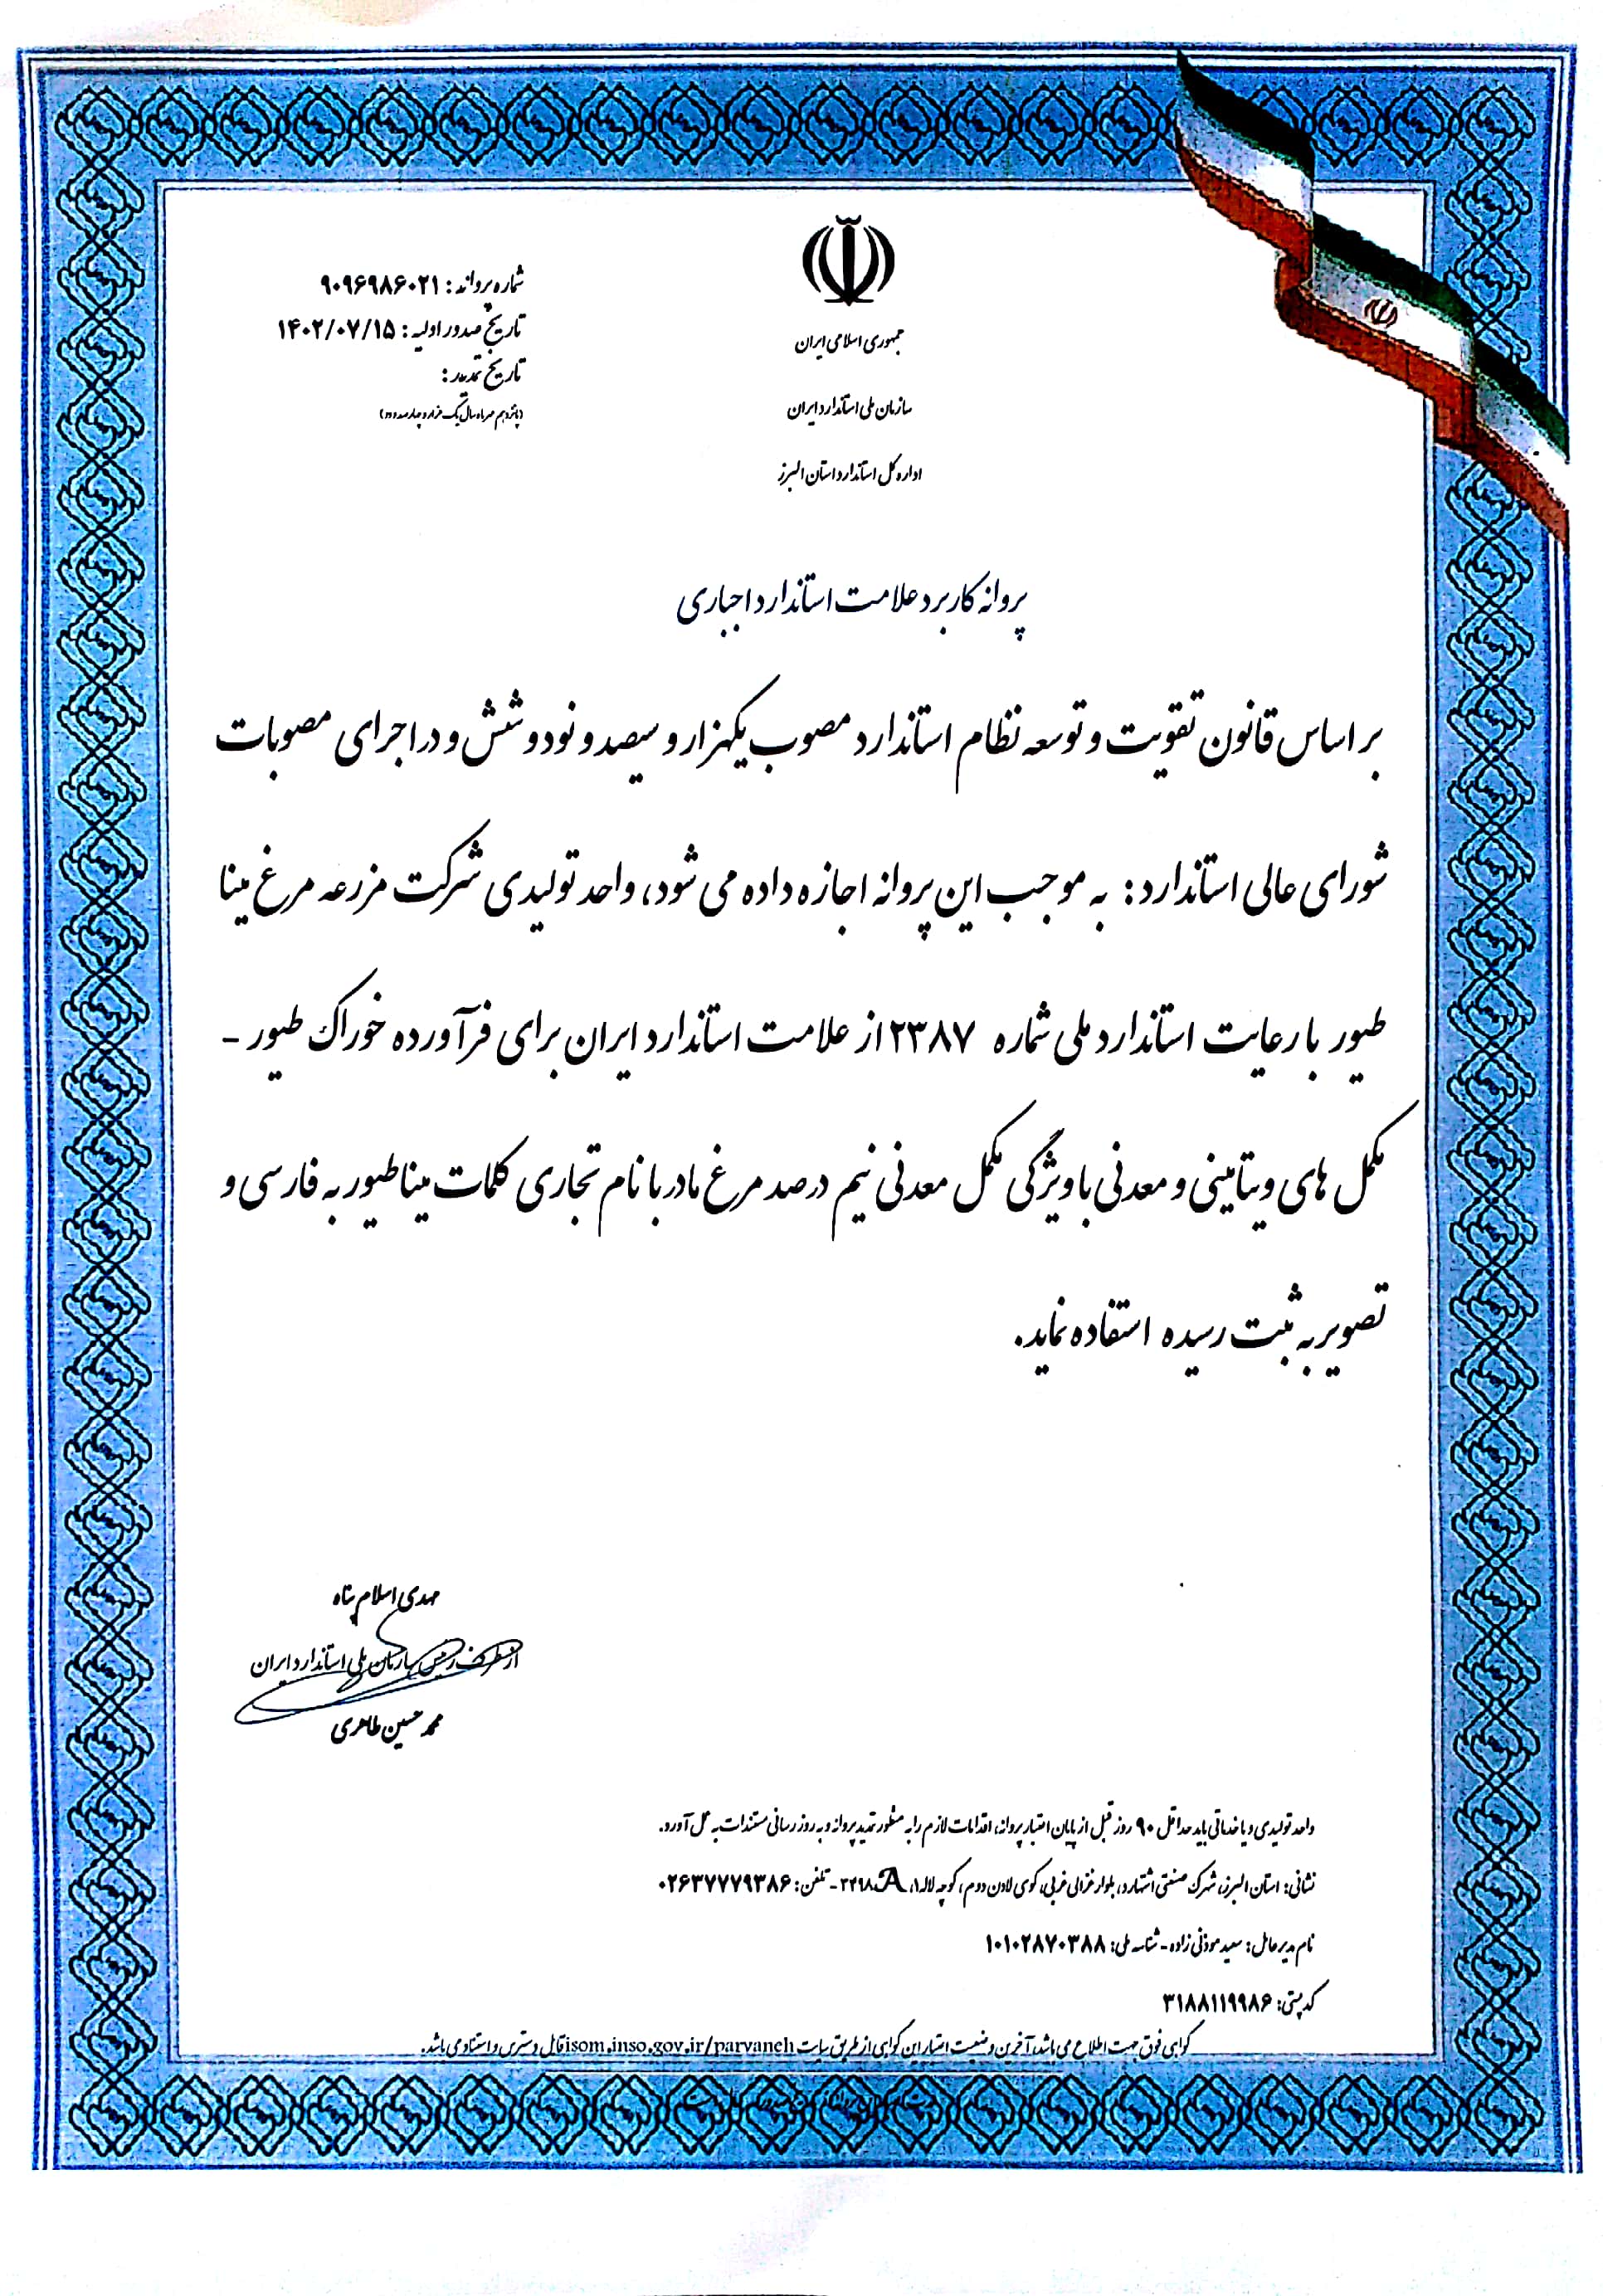 جمهوری اسلامی ایران
سازمان ملی استاندارد ایران
اداره کل استاندارد استان البرز
شماره پروانه : ۹۰۹۶۹۸۶۰۲۱
تاریخ صدور اولیه : ۱۴۰۲/۰۷/۱۵
تاریخ تمدید :
(پانزدهم مهر ماه سال یک هزار و چهارصد و دو)
پروانه کاربرد علامت استاندارد اجباری
بر اساس قانون تقویت و توسعه نظام استاندارد مصوب یکهزار و سیصد و نود و شش و در اجرای مصوبات
شورای عالی استاندارد : به موجب این پروانه اجازه داده می شود، واحد تولیدی شرکت مزرعه مرغ مینا
طیور با رعایت استاندارد ملی شماره ۲۳۸۷ از علامت استاندارد ایران برای فرآورده خوراک طیور -
مکمل های ویتامینی و معدنی با ویژگی مکمل معدنی نیم درصد مرغ مادر با نام تجاری کلمات مینا طیور به فارسی و
تصویر به ثبت رسیده استفاده نماید.
مهدی اسلام پناه
از طرف رئیس سازمان ملی استاندارد ایران
محمد حسین طاهری
واحد تولیدی و یا خدماتی باید حداقل ۹۰ روز قبل از پایان اعتبار پروانه، اقدامات لازم را به منظور تمدید پروانه و به روز رسانی مستندات به عمل آورد.
نشانی: استان البرز، شهرک صنعتی اشتهارد، بلوار غزالی غربی، کوی لادن دوم، کوچه لاله ۱، A۳۲۹۸ - تلفن: ۰۲۶۳۷۷۷۹۳۸۶
نام مدیرعامل: سعید موذنی زاده - شناسه ملی: ۱۰۱۰۲۸۷۰۳۸۸
کد پستی: ۳۱۸۸۱۱۹۹۸۶
گواهی فوق جهت اطلاع می باشد، آخرین وضعیت اعتبار این گواهی از طریق سایت isom.inso.gov.ir/parvaneh قابل دسترس و استناد می باشد.